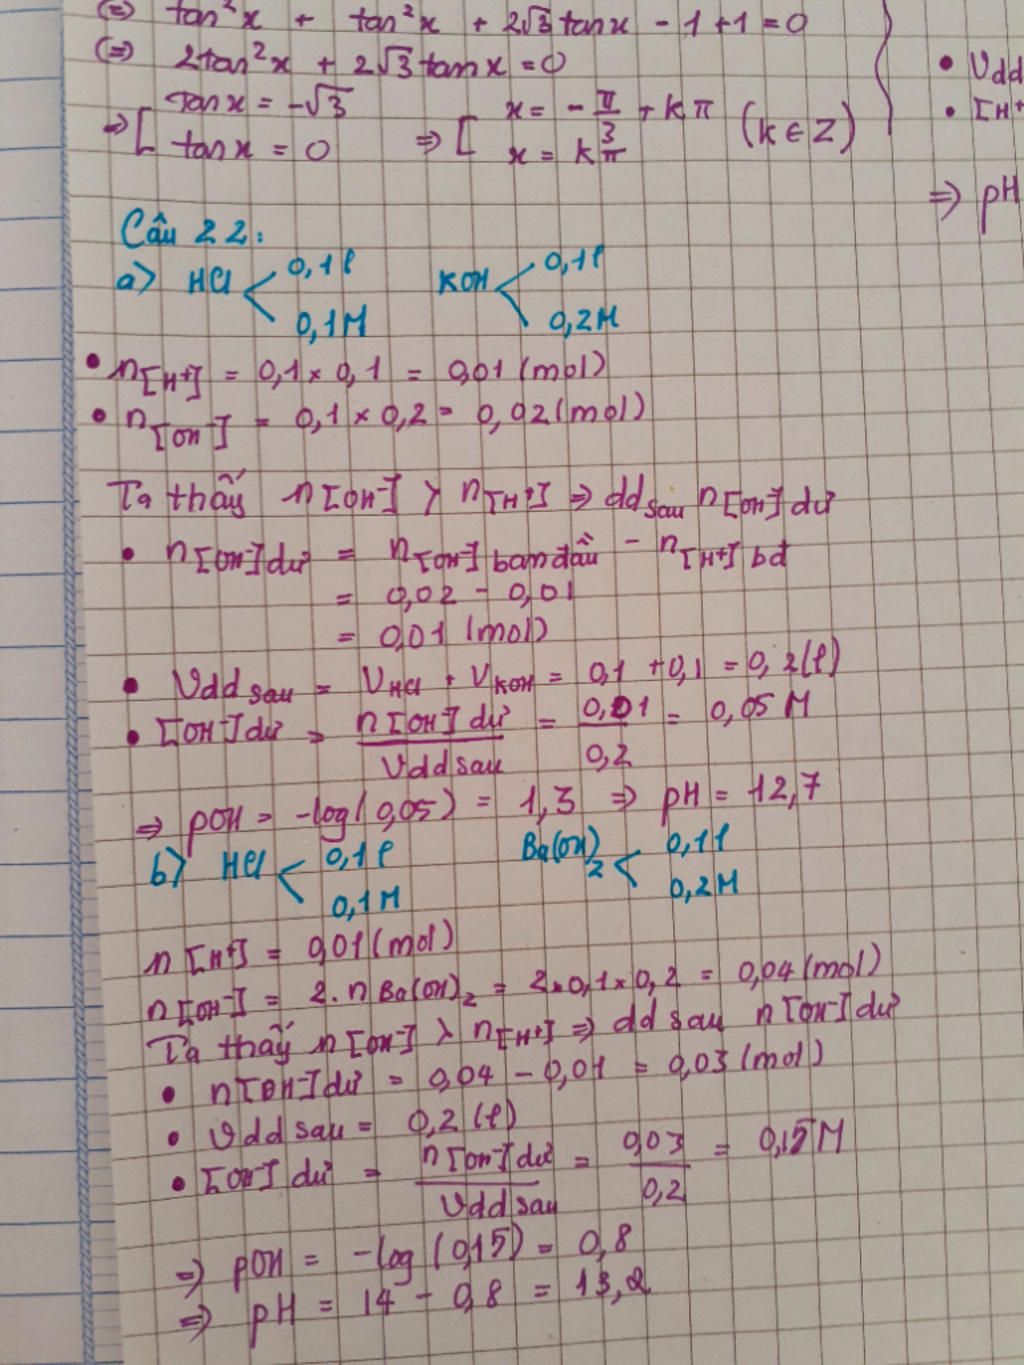 (=) tan²x + tan²x + 2√3 tanx - 1 + 1 = 0
(=) 2tan²x + 2√3 tanx = 0
=> [ tanx = -√3 => [ x = -π/3 + kπ (k ∈ Z)
tanx = 0 x = kπ
• Vdd
• [H+
=> pH
Câu 22:
a> HCl < 0,1l KOH < 0,1l
0,1M 0,2M
• n[H+] = 0,1 × 0,1 = 0,01 (mol)
• n[OH-] = 0,1 × 0,2 = 0,02 (mol)
Ta thấy n[OH-] > n[H+] => dd sau n[OH-] dư
• n[OH-] dư = n[OH-] ban đầu - n[H+] bđ
= 0,02 - 0,01
= 0,01 (mol)
• Vdd sau = VHCl + VKOH = 0,1 + 0,1 = 0,2 (l)
• [OH-] dư = n[OH-] dư / Vdd sau = 0,01 / 0,2 = 0,05 M
=> pOH = -log(0,05) = 1,3 => pH = 12,7
b> HCl < 0,1l Ba(OH)2 < 0,1l
0,1M 0,2M
n[H+] = 0,01 (mol)
n[OH-] = 2. n Ba(OH)2 = 2×0,1×0,2 = 0,04 (mol)
Ta thấy n[OH-] > n[H+] => dd sau n[OH-] dư
• n[OH-] dư = 0,04 - 0,01 = 0,03 (mol)
• Vdd sau = 0,2 (l)
• [OH-] dư = n[OH-] dư / Vdd sau = 0,03 / 0,2 = 0,15 M
=> pOH = -log(0,15) = 0,8
=> pH = 14 - 0,8 = 13,2